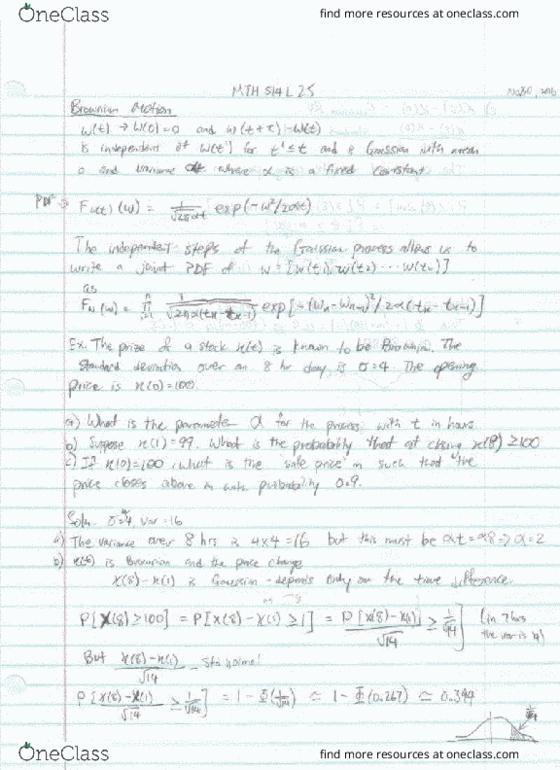 OneClass
find more resources at oneclass.com
MTH 514 L25
Brownian Motion
W(t) → W(0)=0 and W(t+τ)-W(t)
is independent of W(t') for t' ≤ t and Gaussian with mean
0 and variance ατ where α is a fixed constant.
PDF → F_W(t) (w) = 1/√2παt exp(-w²/2αt)
The independent steps of the Gaussian process allows us to
write a joint PDF of w = [w(t1), w(t2) ... w(tn)]
as
F_W (w) = ∏ 1/√2πα(tn-tn-1) exp[-(Wn-Wn-1)²/2α(tn-tn-1)]
Ex. The prize of a stock x(t) is known to be Brownian. The
standard deviation over an 8 hr day is σ=4. The opening
price is x(0)=100.
a) What is the parameter α for the process with t in hours
b) Suppose x(1)=99. What is the probability that at close x(8) ≥ 100
c) If x(0)=100, what is the "safe price" m such that the
price closes above m with probability 0.9.
Soln. σ=4, var=16
a) The variance over 8 hrs is 4x4=16 but this must be αt=α8 ⇒ α=2
b) x(t) is Brownian and the price change
X(8)-X(1) is Gaussian - depends only on the time difference.
P[X(8) ≥ 100] = P[X(8)-X(1) ≥ 1] = P[X(8)-X(1)/√14 ≥ 1/√14] (in 7 hrs
the var is 14)
But X(8)-X(1)/√14
P[X(8)-X(1)/√14 ≥ 1/√14] = 1-Φ(1/√14) ≃ 1-Φ(0.267) ≃ 0.394
OneClass
find more resources at oneclass.com